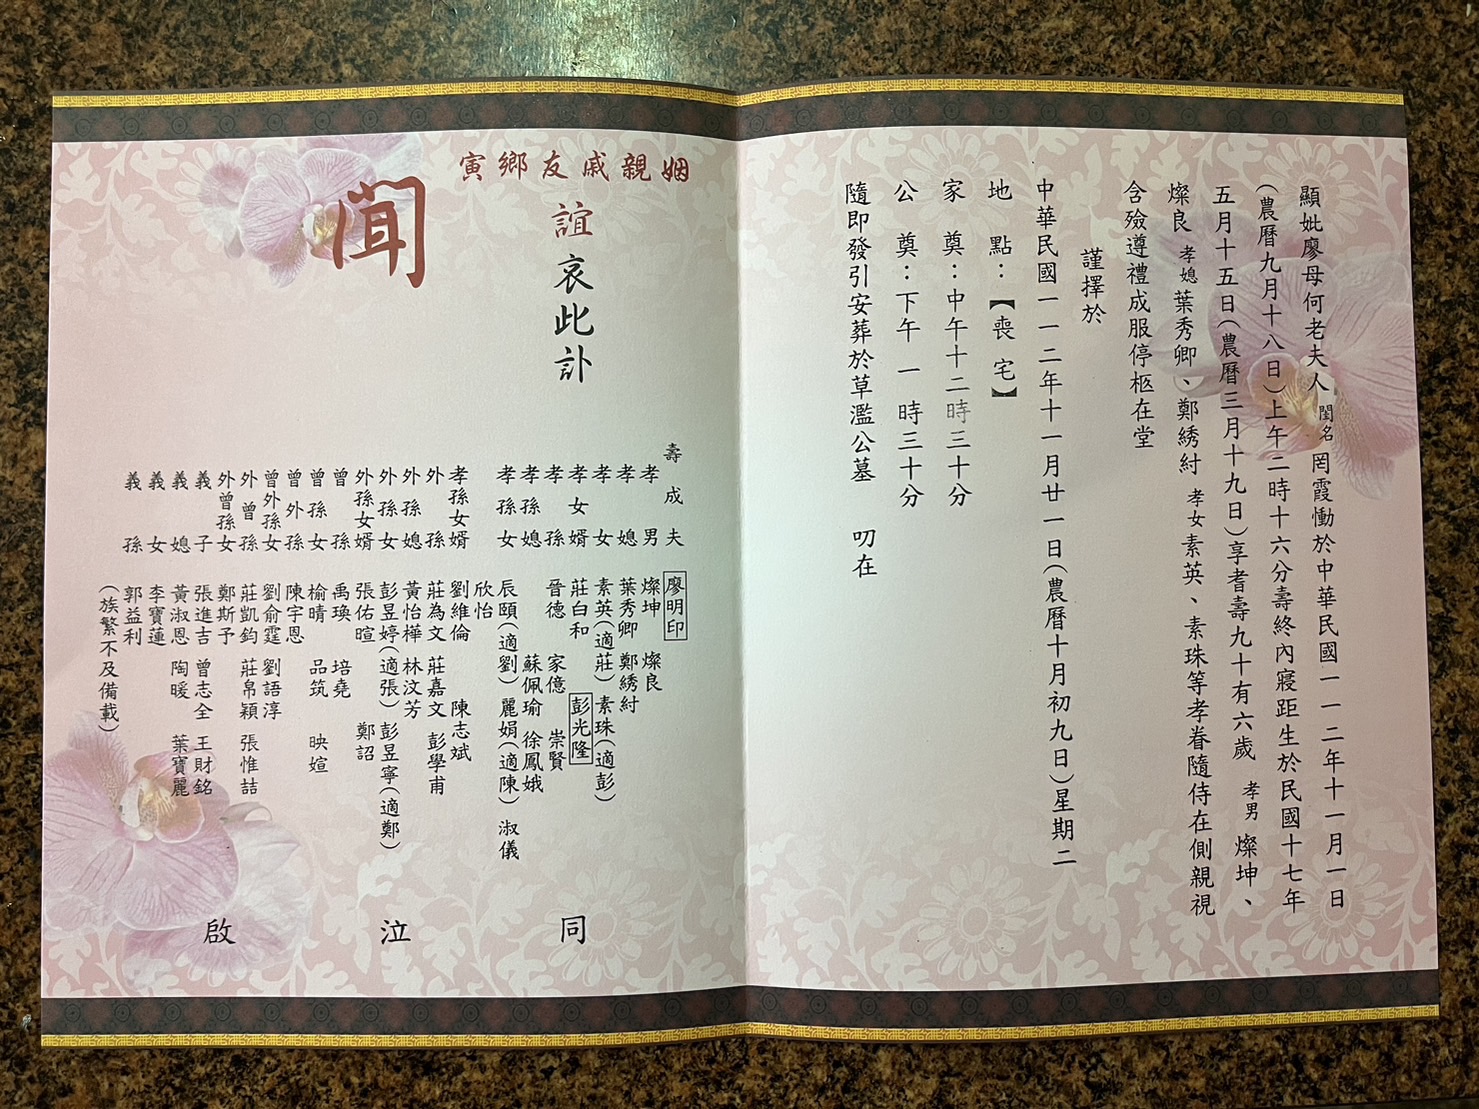 顯妣廖母何老夫人閨名罔霞慟於中華民國一一二年十一月一日
(農曆九月十八日)上午二時十六分壽終內寢距生於民國十七年
五月十五日(農曆三月十九日)享耆壽九十有六歲 孝男 燦坤、
燦良 孝媳 葉秀卿、鄭綉紂 孝女 素英、素珠等孝眷隨侍在側親視
含殮遵禮成服停柩在堂
謹擇於
中華民國一一二年十一月廿一日(農曆十月初九日)星期二
地 點:【喪宅】
家 奠:中午十二時三十分
公 奠:下午一時三十分
隨即發引安葬於草濫公墓 叨在
姻親戚友鄉寅
誼哀此訃
聞
壽成夫 廖明印
孝男 燦坤 燦良
孝媳 葉秀卿 鄭綉紂
孝女 素英(適莊) 素珠(適彭)
孝女婿 莊白和 彭光隆
孝孫 晉德 家億 崇賢
孝孫媳 蘇佩瑜 徐鳳娥
孝孫女 辰頤(適劉) 麗娟(適陳) 淑儀
欣怡
孝孫女婿 劉維倫 陳志斌
外孫 莊為文 莊嘉文 彭學甫
外孫媳 黃怡樺 林汶芳
外孫女 彭昱婷(適張) 彭昱寧(適鄭)
外孫女婿 張佑暄 鄭詔
曾孫 禹瑍 培堯
曾孫女 榆晴 品筑 映媗
曾外孫 陳宇恩
曾外孫女 劉俞霆 劉語淳
外曾孫 莊凱鈞 莊帛穎 張惟喆
外曾孫女 鄭斯予
義子 張進吉 曾志全 王財銘
義媳 黃淑恩 陶暖 葉寶麗
義女 李寶蓮
義孫 郭益利
(族繁不及備載)
同泣啟